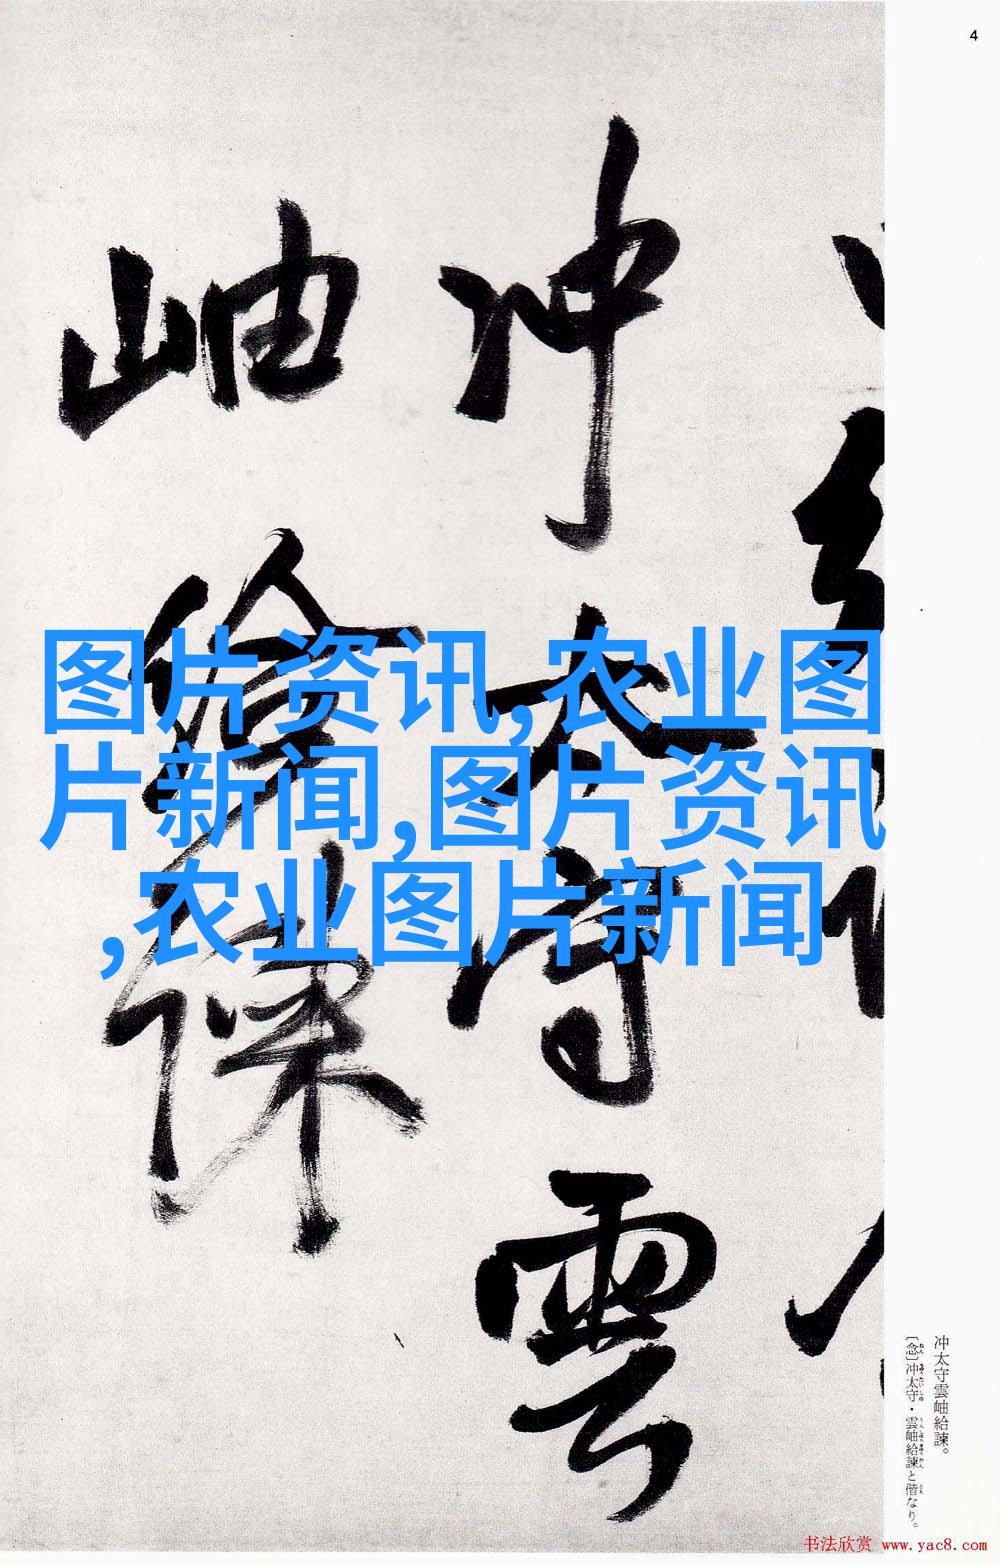 4
冲太守雲
岫給諫
图片资讯,农业图
片新闻,图片资讯
,农业图片新闻
冲太守雲岫給諫。
〔念〕冲太守・雲岫給諫と偕なり。
书法欣赏 www.yac8.com